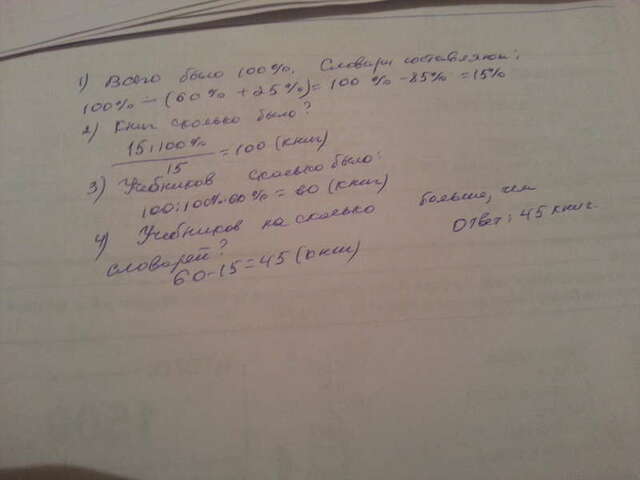 1) Всего было 100%. Словари составляют:
100% - (60% + 25%) = 100% - 85% = 15%
2) Книг сколько было?
15·100%
15
= 100 (книг)
3) Учебников сколько было:
100:100%·60% = 60 (книг)
4) Учебников на сколько больше, чем
словарей?
60-15=45 (книг)
Ответ: 45 книг.